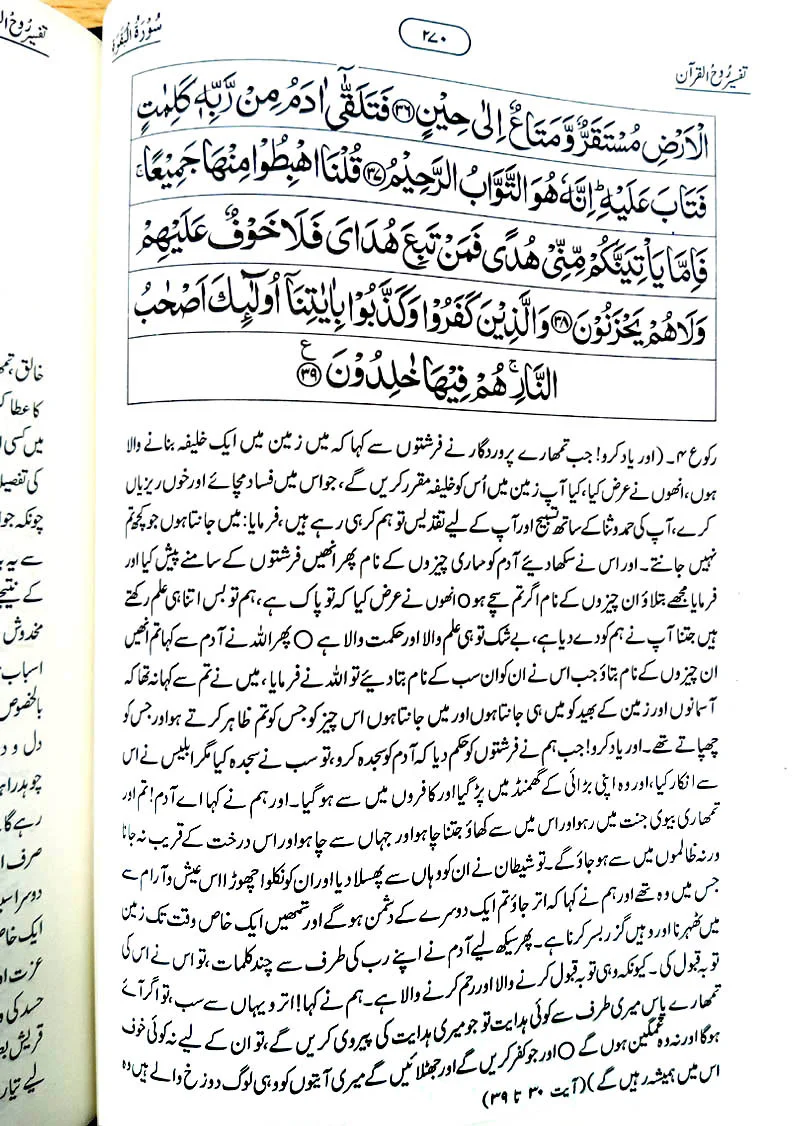 تفسیر روح القرآن
۲۷۰
سُوۡرَةُ الۡبَقَرَة
الۡاَرۡضِ مُسۡتَقَرٌّ وَّمَتَاعٌ اِلٰى حِيۡنٍ ۝۳۶ فَتَلَقّٰٓى اٰدَمُ مِنۡ رَّبِّهٖ كَلِمٰتٍ
فَتَابَ عَلَيۡهِ ؕ اِنَّهٗ هُوَ التَّوَّابُ الرَّحِيۡمُ ۝۳۷ قُلۡنَا اهۡبِطُوۡا مِنۡهَا جَمِيۡعًا ۚ
فَاِمَّا يَاۡتِيَنَّكُمۡ مِّنِّىۡ هُدًى فَمَنۡ تَبِعَ هُدَاىَ فَلَا خَوۡفٌ عَلَيۡهِمۡ
وَلَا هُمۡ يَحۡزَنُوۡنَ ۝۳۸ وَالَّذِيۡنَ كَفَرُوۡا وَكَذَّبُوۡا بِاٰيٰتِنَآ اُولٰٓئِكَ اَصۡحٰبُ
النَّارِ ۚ هُمۡ فِيۡهَا خٰلِدُوۡنَ ۝۳۹ ع
رکوع ۴۔ (اور یاد کرو! جب تمھارے پروردگار نے فرشتوں سے کہا کہ میں زمین میں ایک خلیفہ بنانے والا
ہوں، انھوں نے عرض کیا، کیا آپ زمین میں اُس کو خلیفہ مقرر کریں گے، جو اس میں فساد مچائے اور خوں ریزیاں
کرے، آپ کی حمد و ثنا کے ساتھ تسبیح اور آپ کے لیے تقدیس تو ہم کر ہی رہے ہیں، فرمایا: میں جانتا ہوں جو کچھ تم
نہیں جانتے۔ اور اس نے سکھا دیئے آدم کو ساری چیزوں کے نام پھر انھیں فرشتوں کے سامنے پیش کیا اور
فرمایا مجھے بتلاؤ ان چیزوں کے نام اگر تم سچے ہو ○ انھوں نے عرض کیا کہ تو پاک ہے، ہم تو بس اتنا ہی علم رکھتے
ہیں جتنا آپ نے ہم کو دے دیا ہے، بے شک تو ہی علم والا اور حکمت والا ہے ○ پھر اللہ نے آدم سے کہا تم انھیں
ان چیزوں کے نام بتاؤ جب اس نے ان کو ان سب کے نام بتا دیئے تو اللہ نے فرمایا، میں نے تم سے کہا نہ تھا کہ
آسمانوں اور زمین کے بھید کو میں ہی جانتا ہوں اور میں جانتا ہوں اس چیز کو جس کو تم ظاہر کرتے ہو اور جس کو
چھپاتے تھے۔ اور یاد کرو! جب ہم نے فرشتوں کو حکم دیا کہ آدم کو سجدہ کرو، تو سب نے سجدہ کیا مگر ابلیس نے اس
سے انکار کیا، اور وہ اپنی بڑائی کے گھمنڈ میں پڑ گیا اور کافروں میں سے ہو گیا۔ اور ہم نے کہا اے آدم! تم اور
تمھاری بیوی جنت میں رہو اور اس میں سے کھاؤ جتنا چاہو اور جہاں سے چاہو اور اس درخت کے قریب نہ جانا
ورنہ ظالموں میں سے ہو جاؤ گے۔ تو شیطان نے ان کو وہاں سے پھسلا دیا اور ان کو نکلوا چھوڑا اس عیش و آرام سے
جس میں وہ تھے اور ہم نے کہا کہ اتر جاؤ تم ایک دوسرے کے دشمن ہو گے اور تمھیں ایک خاص وقت تک زمین
میں ٹھہرنا اور وہیں گزر بسر کرنا ہے۔ پھر سیکھ لیے آدم نے اپنے رب کی طرف سے چند کلمات، تو اس نے اس کی
توبہ قبول کی۔ کیونکہ وہی توبہ قبول کرنے والا اور رحم کرنے والا ہے۔ ہم نے کہا! اترو یہاں سے سب، تو اگر آئے
تمھارے پاس میری طرف سے کوئی ہدایت تو جو میری ہدایت کی پیروی کریں گے، تو ان کے لیے نہ کوئی خوف
ہوگا اور نہ وہ غمگین ہوں گے ○ اور جو کفر کریں گے اور جھٹلائیں گے میری آیتوں کو وہی لوگ دوزخ والے ہیں وہ
اس میں ہمیشہ رہیں گے) (آیت ۳۰ تا ۳۹)
تفسیر روح ال
خالق، تمھ
کا عطا ک
میں کسی ا
کی تفصیل
چونکہ جوا
سے یہ
کے نتیجے
مخدوش
اسباب
بالخصوص
دل و د
چوہدرا
رہے گا۔
صرف ا
دوسرا
ایک خاص
عزت اور
حسد کی و
قریش
لیے تیار